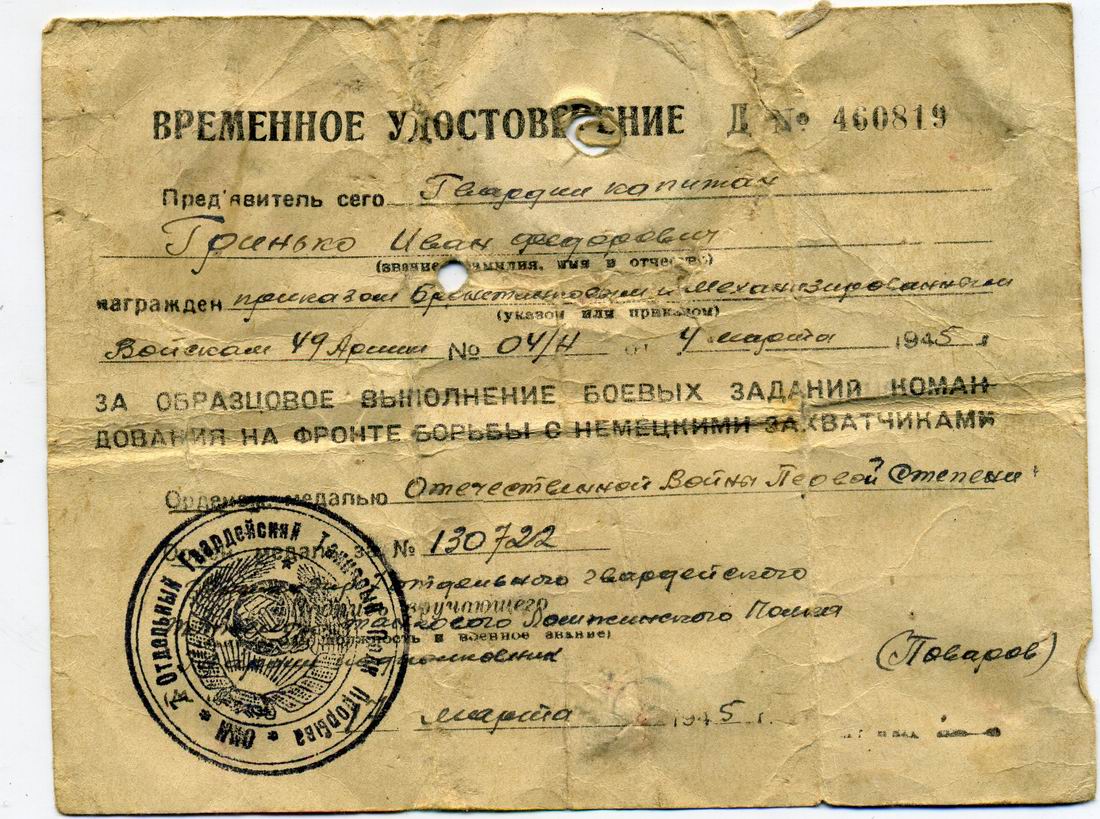 ВРЕМЕННОЕ УДОСТОВЕРЕНИЕ Д № 460819
Пред'явитель сего Гвардии капитан
Гринько Иван Федорович
(звание, фамилия, имя и отчество)
награжден приказом Бронетанковым и Механизированным
(указом или приказом)
Войскам 49 Армии № 04/Н от 4 марта 1945 г
ЗА ОБРАЗЦОВОЕ ВЫПОЛНЕНИЕ БОЕВЫХ ЗАДАНИЙ КОМАН-
ДОВАНИЯ НА ФРОНТЕ БОРЬБЫ С НЕМЕЦКИМИ ЗАХВАТЧИКАМИ
Орденом, медалью Отечественной Война Первой Степени
медаль за № 130722
Отдельного гвардейского
вручающего
танкового Полка
должность и военное звание)
подполковник (Поваров)
марта 1945 г.
Отдельный Гвардейский Танковый Полк Прорыва * ОКИ *